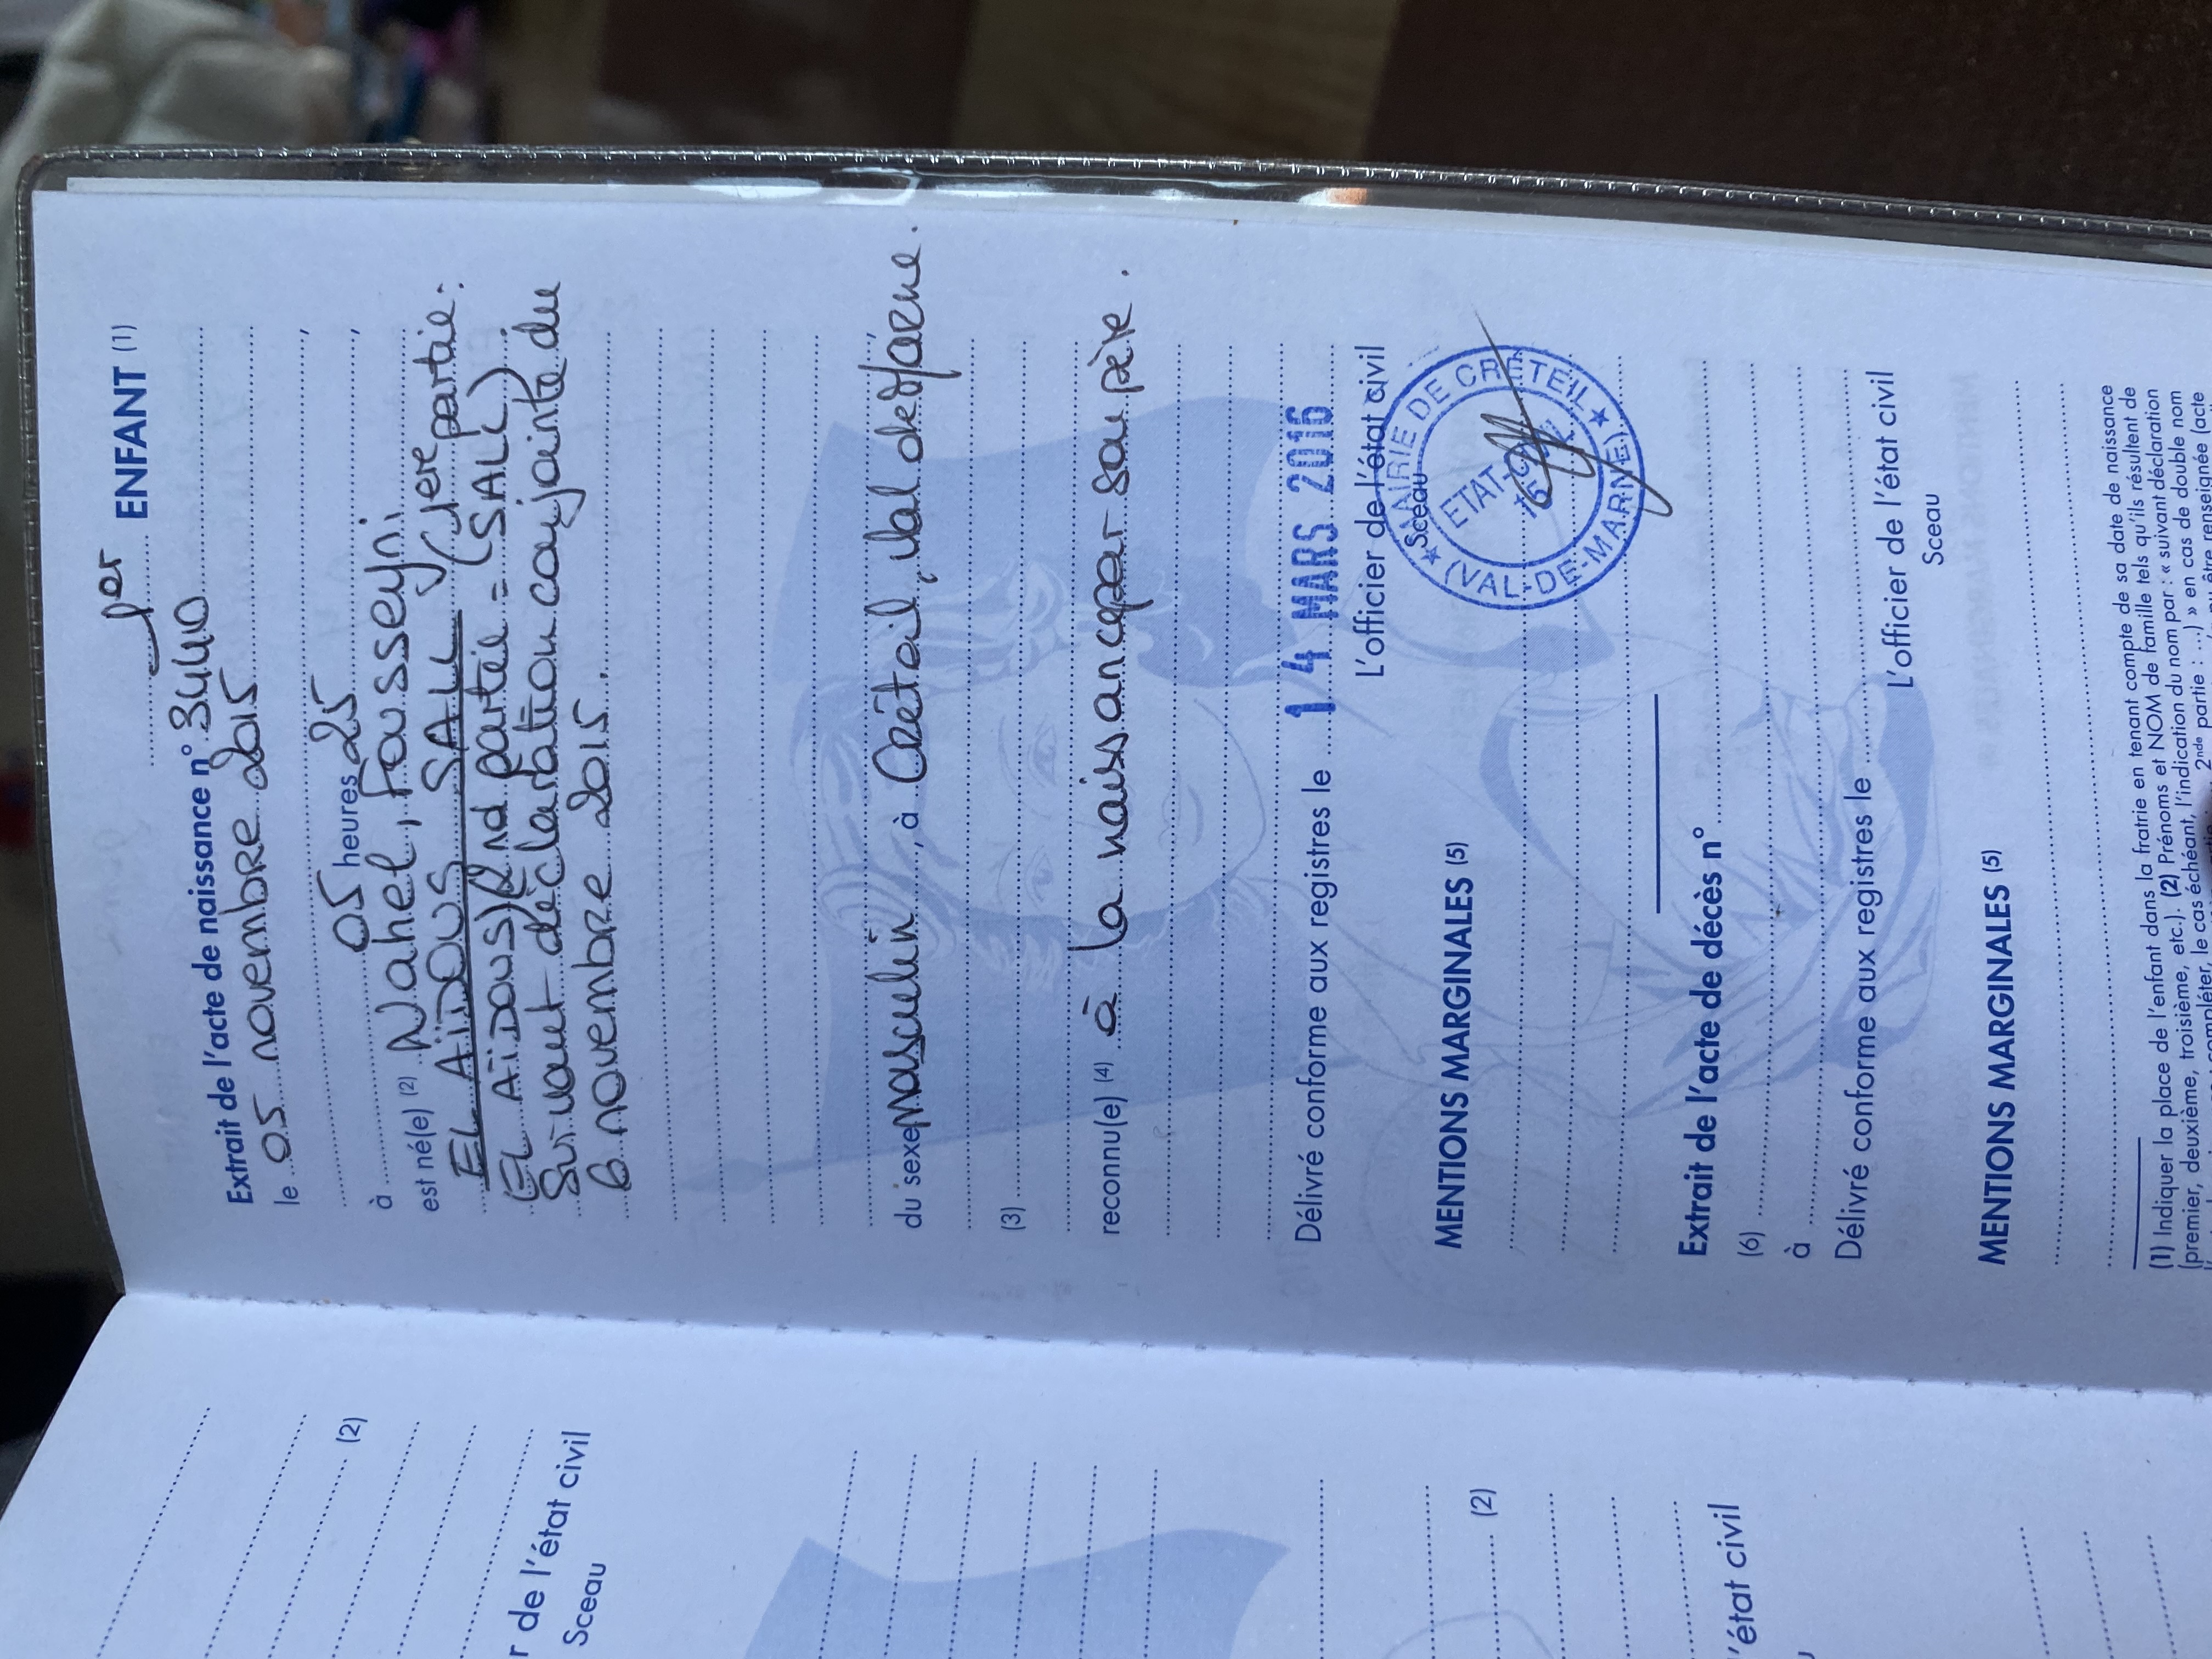 1er ENFANT (1)
Extrait de l'acte de naissance n° 3440
le 05 novembre 2015
à 05 heures 25
est né(e) (2) Nahel, Fousseyni
EL AÏDOUS SALL (1ere partie:
EL AÏDOUS) (2nd partie = SALL)
Suivant déclaration conjointe du
6 novembre 2015.
du sexe masculin, à Créteil, Val de Marne.
(3)
reconnu(e) (4) à la naissance par son père.
Délivré conforme aux registres le 14 MARS 2016
L'officier de l'état civil
Sceau
MAIRIE DE CRÉTEIL
(VAL-DE-MARNE)
MENTIONS MARGINALES (5)
Extrait de l'acte de décès n°
(6)
à
Délivré conforme aux registres le
L'officier de l'état civil
Sceau
MENTIONS MARGINALES (5)
(1) Indiquer la place de l'enfant dans la fratrie en tenant compte de sa date de naissance
(premier, deuxième, troisième, etc.). (2) Prénoms et NOM de famille tels qu'ils résultent de
le cas échéant, l'indication du nom par : « suivant déclaration
2nde partie : ...) » en cas de double nom
être renseignée (acte
(2)
r de l'état civil
Sceau
(2)
'état civil